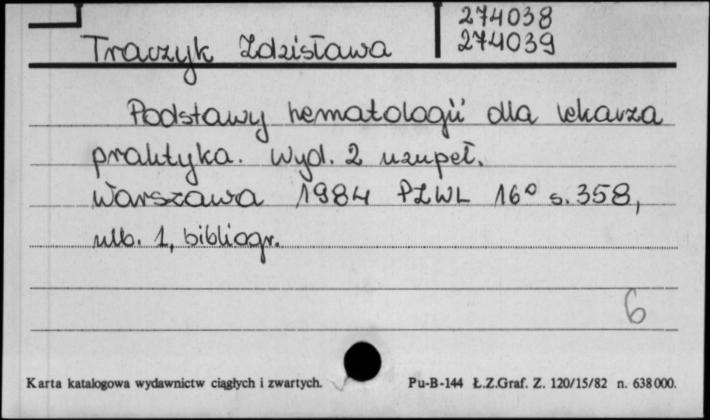 274038
Traczyk Zdzisława 274039
Podstawy hematologii dla lekarza
praktyka. Wyd. 2 uzupeł.
Warszawa 1984 PZWL 16° s. 358,
nlb. 1, bibliogr.
6
Karta katalogowa wydawnictw ciągłych i zwartych. Pu-B-144 Ł.Z.Graf. Z. 120/15/82 n. 638000.